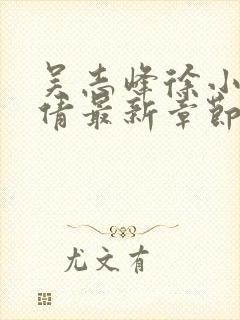 吴志峰徐小
倩最新章節
尤文有